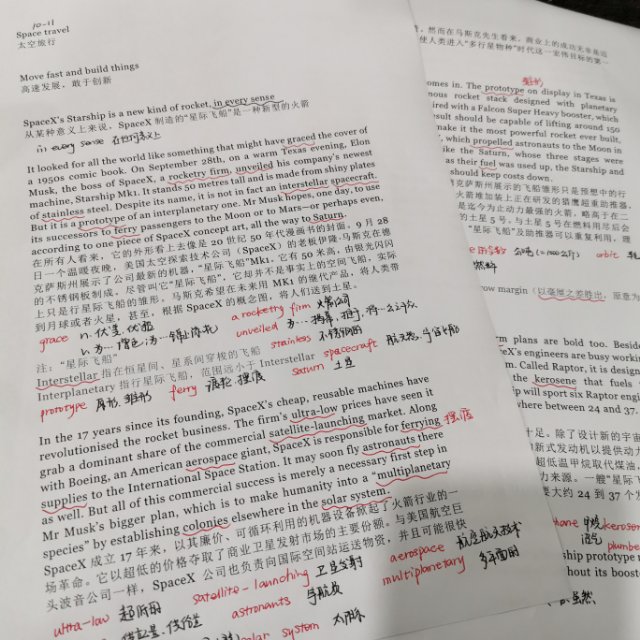 10-11
Space travel
太空旅行
Move fast and build things
高速发展，敢于创新
SpaceX's Starship is a new kind of rocket, in every sense
从某种意义上来说，SpaceX 制造的“星际飞船”是一种新型的火箭
in every sense 在任何意义上
It looked for all the world like something that might have graced the cover of
a 1950s comic book. On September 28th, on a warm Texas evening, Elon
Musk, the boss of SpaceX, a rocketry firm, unveiled his company's newest
machine, Starship Mk1. It stands 50 metres tall and is made from shiny plates
of stainless steel. Despite its name, it is not in fact an interstellar spacecraft.
But it is a prototype of an interplanetary one. Mr Musk hopes, one day, to use
its successors to ferry passengers to the Moon or to Mars—or perhaps even,
according to one piece of SpaceX concept art, all the way to Saturn.
在所有人看来，它的外形看上去像是 20 世纪 50 年代漫画书的封面。9 月 28
日一个温暖夜晚，美国太空探索技术公司（SpaceX）的老板伊隆·马斯克在德
克萨斯州展示了公司最新的机器，“星际飞船”Mk1。它有 50 米高，由银光闪闪
的不锈钢板制成。尽管它叫“星际飞船”，它却并不是事实上的星际飞船，实际
上只是行星际飞船的雏形，马斯克希望在未来用 MK1 的继代产品，将人类带
到月球或者火星，甚至，根据 SpaceX 的概念图，将人们送到土星。
grace a rocketry firm 火箭公司
unveiled
stainless 不锈钢的
注：“星际飞船”
Interstellar 指在恒星间、星系间穿梭的飞船
spacecraft
Interplanetary 指行星际飞船，范围远小于 Interstellar
prototype 原形，雏形 ferry 渡轮，摆渡 saturn 土星
In the 17 years since its founding, SpaceX's cheap, reusable machines have
revolutionised the rocket business. The firm's ultra-low prices have seen it
grab a dominant share of the commercial satellite-launching market. Along
with Boeing, an American aerospace giant, SpaceX is responsible for ferrying 摆渡
supplies to the International Space Station. It may soon fly astronauts there
as well. But all of this commercial success is merely a necessary first step in
Mr Musk's bigger plan, which is to make humanity into a "multiplanetary
species" by establishing colonies elsewhere in the solar system.
SpaceX 成立 17 年来，以其廉价、可循环利用的机器设备掀起了火箭行业的一
场革命。它以超低的价格夺取了商业卫星发射市场的主要份额。与美国航空巨
头波音公司一样，SpaceX 公司也负责向国际空间站运送物资，并且可能很快
ultra-low 超低的 satellite-launching 卫星发射 aerospace 航空航天技术
astronants 宇航员 multiplanetary 多行星的
solar system 太阳系
，然而在马斯克先生看来，商业上的成功无非是迈
使人类进入“多行星物种”时代这一宏伟目标的第一
omes in. The prototype on display in Texas is
nous rocket stack designed with planetary
ired with a Falcon Super Heavy booster, which
sult should be capable of lifting around 150
make it the most powerful rocket ever built.
, which propelled astronauts to the Moon in
like the Saturn, whose three stages were
as their fuel was used up, the Starship and
should keep costs down.
克萨斯州展示的飞船雏形只是预想中的行
火箭堆加装上正在研发的猎鹰超重助推器，
是迄今为止动力最强的火箭，略高于在二
的土星 5 号。与土星 5 号在燃料用尽后会
“星际飞船”及助推器可以重复利用，理
orbit
燃料
row margin（以毫厘之差胜出，原意为
rm plans are bold too. Beside
eX's engineers are busy workin
m. Called Raptor, it is design
the kerosene that fuels
hip will sport six Raptor engin
where between 24 and 37.
十足。除了设计新的宇宙
新式发动机以提供动力
超低温甲烷取代煤油，
力来源。一艘“星际飞
要大约 24 到 37 个发
hane 甲烷 kerosene
ship prototype m
hout its booster